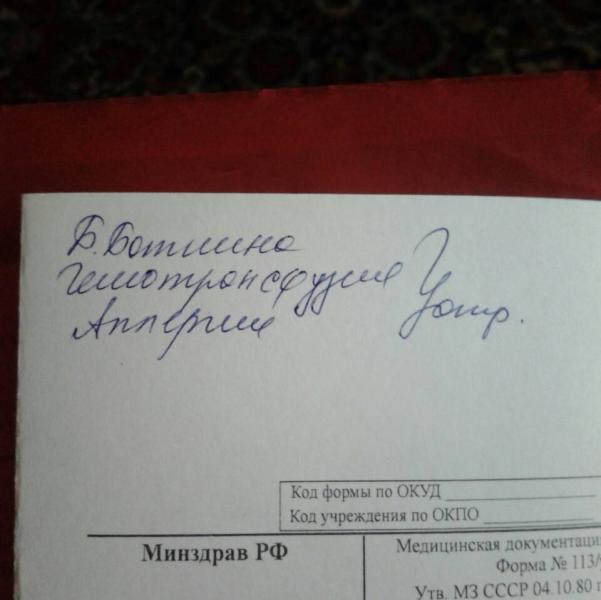 Б. Боткина
гемотрансфузия
Аллергия
Код формы по ОКУД
Код учреждения по ОКПО
Минздрав РФ
Медицинская документаци
Форма № 113/
Утв. МЗ СССР 04.10.80 г